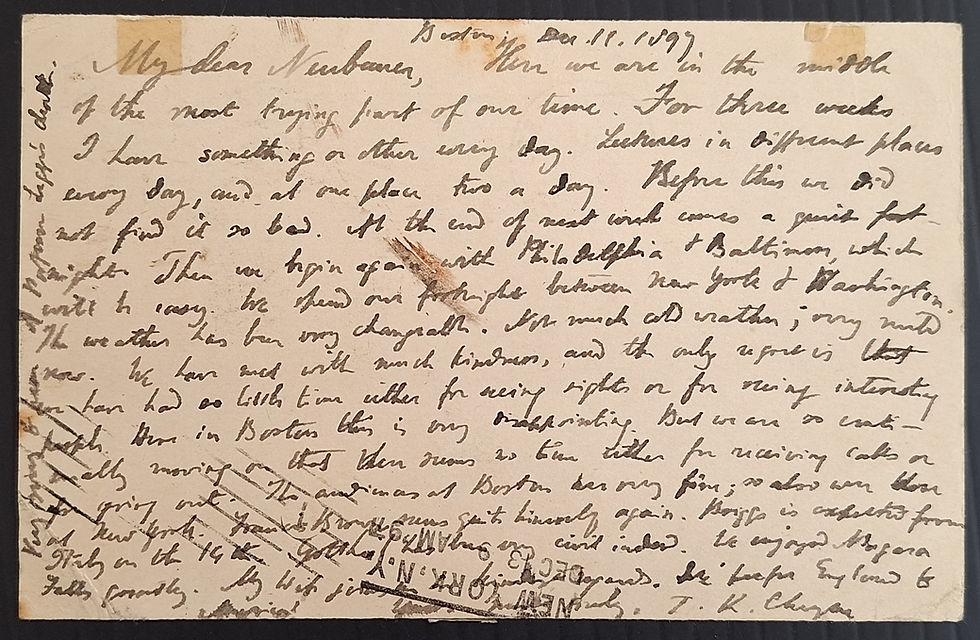 Boston, Dec. 11. 1897
My dear Neubauer, Here we are in the middle
of the most trying part of our time. For three weeks
I have something or other every day. Lectures in different places
every day, and at one place two a day. Before this we did
not find it so bad. At the end of next week comes a quiet fort-
night. Then we begin again with Philadelphia & Baltimore, which
will be easy. We spend our fortnight between New York & Washington.
The weather has been very changeable. Not much cold weather; very mild
now. We have met with much kindness, and the only regret is that
we have had so little time either for seeing sights or for seeing interesting
people. Here in Boston this is very disappointing. But we are so conti-
nually moving on that there seems no time either for receiving calls or
for going out. The audiences at Boston are very fine; so also were those
at New York. Francis Brown seems quite himself again. Briggs is expected from
Italy on the 14th. Gottheil has been very civil indeed. We enjoyed Niagara
Falls greatly. My wife joins in kindest regards. We prefer England to
America! Yours T. K. Cheyne
Very sorry to hear of Professor Legge's death.
NEW YORK, N.Y.
DEC 13 9 AM 97